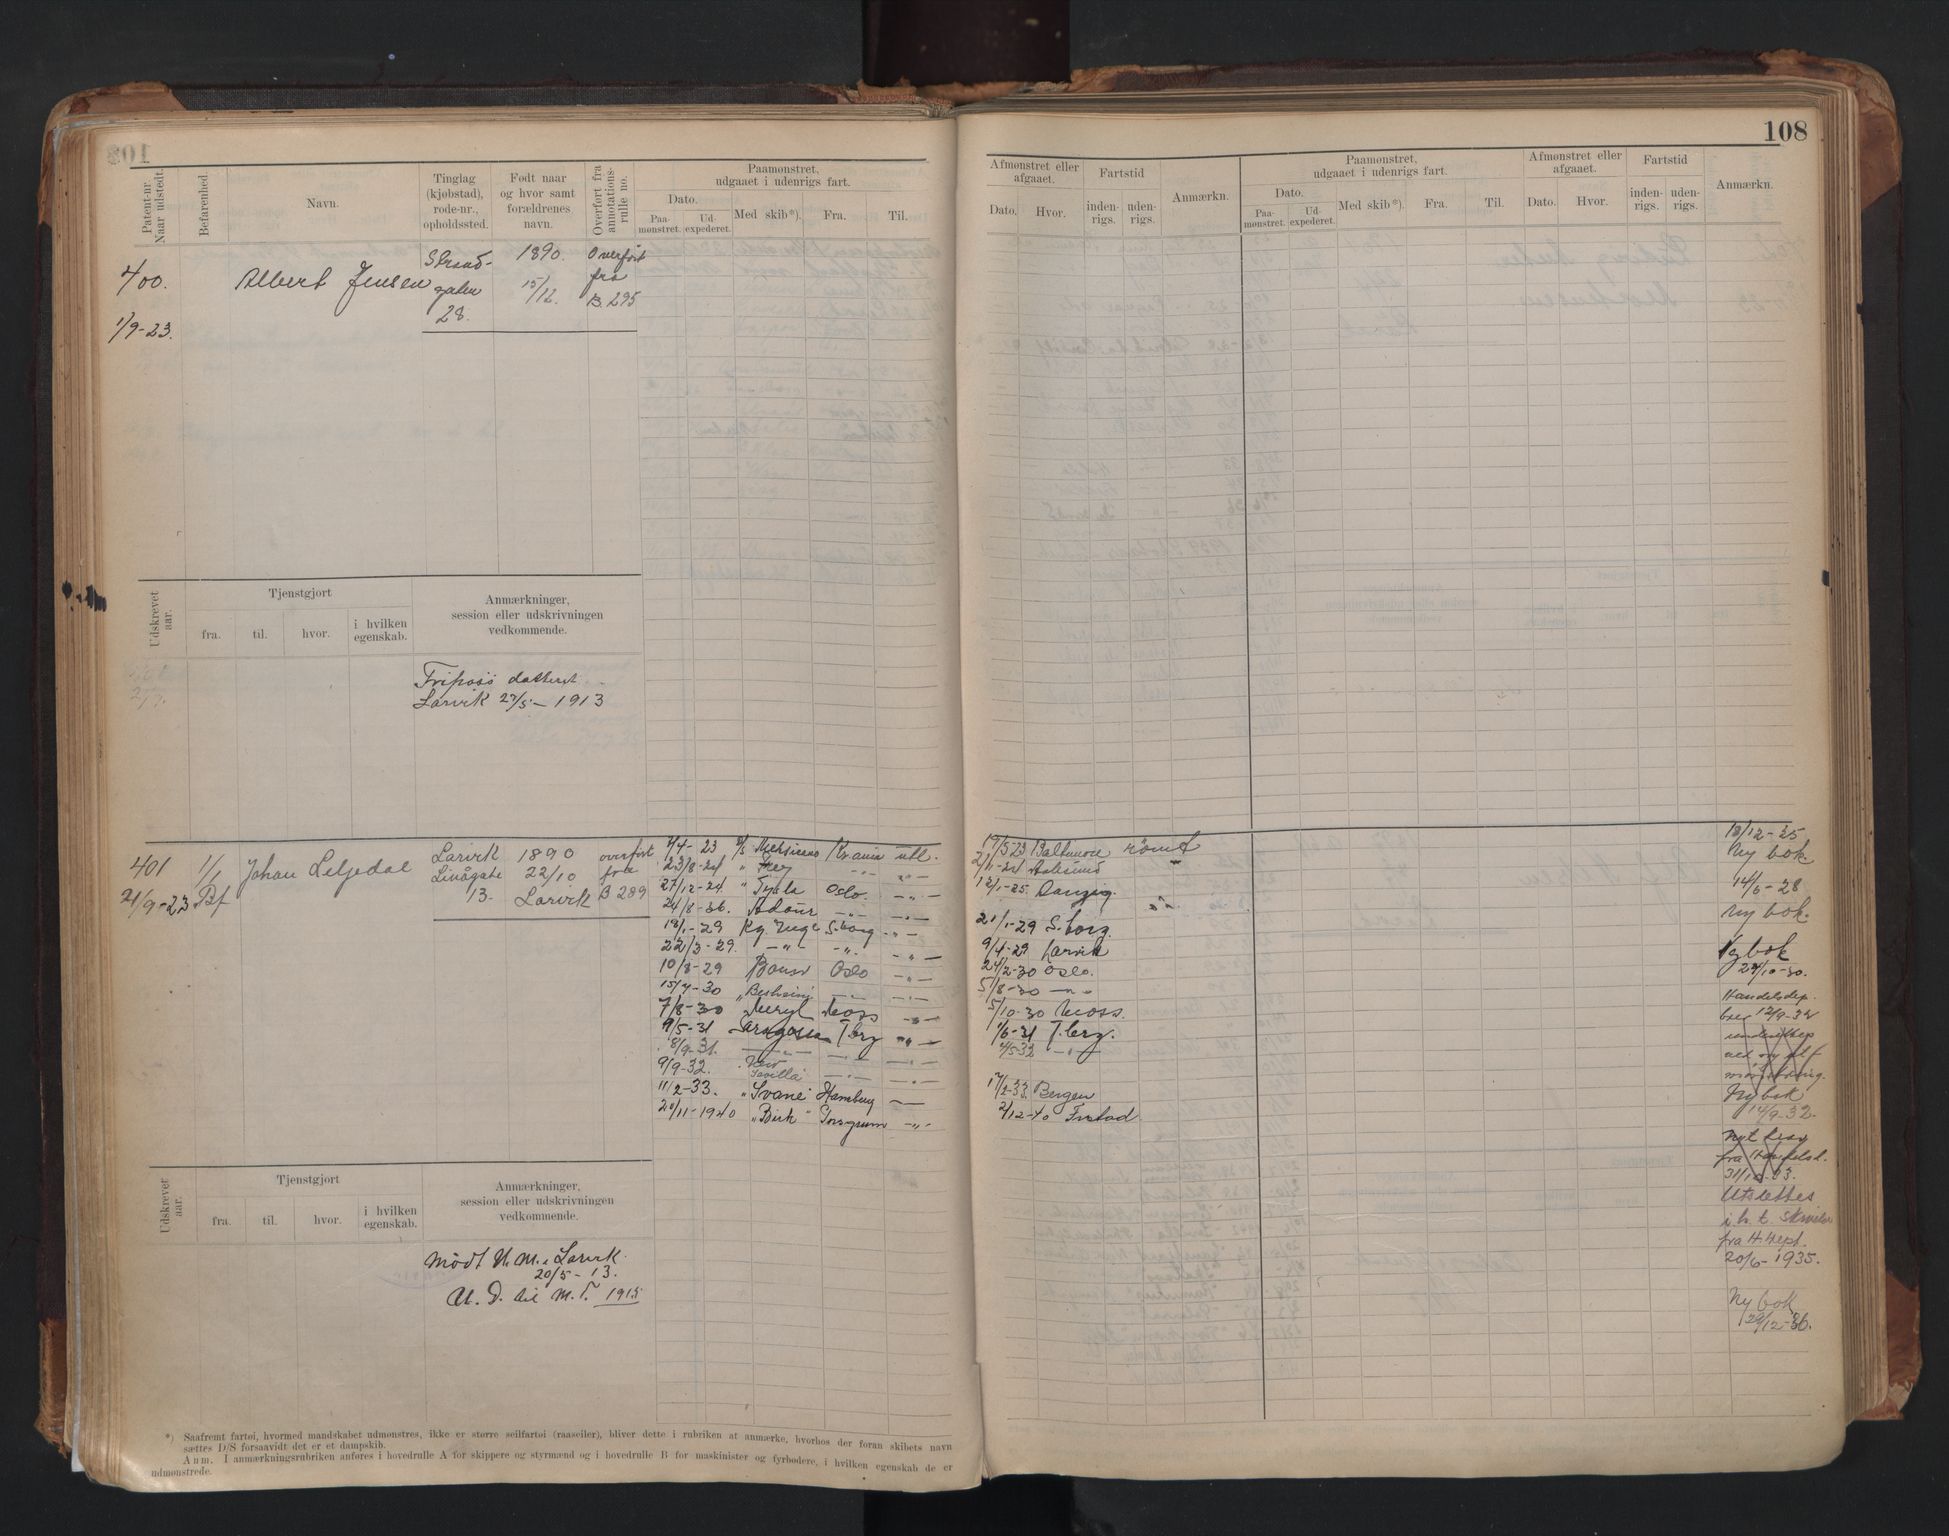 108
Patent-nr. Naar udstedt.
Befarenhed.
Navn.
Tinglag (kjøbstad), rode-nr., opholdssted.
Født naar og hvor samt forældrenes navn.
Overført fra annotations-rulle no.
Paamønstret, udgaaet i udenrigs fart.
Dato.
Paa-mønstret.
Ud-expederet.
Med skib*).
Fra.
Til.
Afmønstret eller afgaaet.
Dato.
Hvor.
Fartstid
inden-rigs.
uden-rigs.
Anmærkn.
Paamønstret, udgaaet i udenrigs fart.
Dato.
Paa-mønstret.
Ud-expederet.
Med skib*).
Fra.
Til.
Afmønstret eller afgaaet.
Dato.
Hvor.
Fartstid
inden-rigs.
uden-rigs.
Anmærkn.
400.
1/9-23.
Albert Jensen
Strand-
gaten
28.
1890.
15/12.
Overført
fra
B. 295
Udskrevet aar.
Tjenstgjort
fra.
til.
hvor.
i hvilken egenskab.
Anmærkninger, session eller udskrivningen vedkommende.
Larvik 27/5-1913
401
21/9-23
1/1
Bf
Johan Leljedal
Larvik
13.
1890
22/10
Larvik
overført
fra
B 289
2/4-23
23/8-24 " Frey
27/12-24 " Tyrla Oslo. -"-
24/8-26.
18/1-29 Kg. Inge S.borg -"-
22/3-29. -"- -"- -"-
10/8-29 Oslo -"-
15/4-30
7/8-30 " Meryl Moss -"-
9/5-31 T.berg -"-
8/9-31. -"- -"- -"-
9/9-32. -"- -"-
11/2-33. "Svane" Hamburg
20/11-1940 "Birk" -"-
19/5-23 Baltimore rømt
2/11-24
12/1-25. Danzig
21/1-29 S.borg.
9/4-29 Larvik
24/2-30 Oslo.
5/8-30 -"-
5/10-30 Moss.
1/6-31 T.berg.
4/5-32 -"-
17/2-33. Bergen
2/12-40 Fr.stad
18/12-25
Ny bok
14/6-28
Ny bok.
Ny bok
29/10-30.
Handelsdep.
brev 12/9-32
Ny bok
14/9-32.
fra Handelsd.
31/10-33.
Utslettes
i h. t. skrivelse
fra H.dept.
20/6-1935.
Ny bok
29/12-36.
Udskrevet aar.
Tjenstgjort
fra.
til.
hvor.
i hvilken egenskab.
Anmærkninger, session eller udskrivningen vedkommende.
Mødt U. M. i Larvik
20/5-13.
U. D. til M. T. 1915
*) Saafremt fartøi, hvormed mandskabet udmønstres, ikke er større seilfartøi (raaseiler), bliver dette i rubriken at anmærke, hvorhos der foran skibets navn
sættes D/S forsaavidt det er et dampskib.
Anm. I anmærkningsrubriken anføres i hovedrulle A for skippere og styrmænd og i hovedrulle B for maskinister og fyrbødere, i hvilken egenskab de er
udmønstrede.